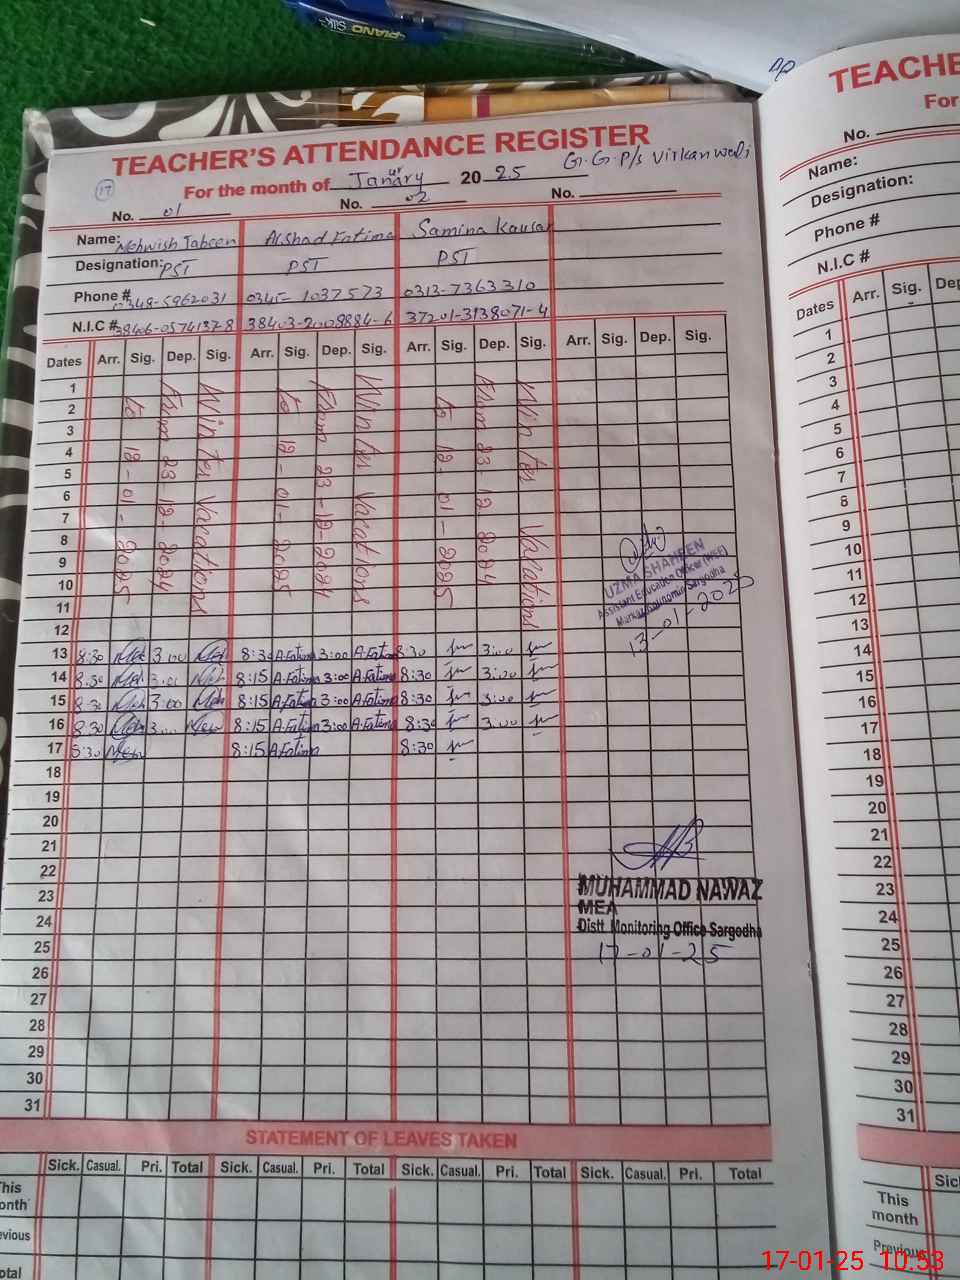 PIANO Silk
TEACHER'S ATTENDANCE REGISTER
G.G.P/s Virkanwali
17
For the month of Janary 20 25
No. 01 No. 02 No.
Name: Mehwish Jabeen Arshad Fatima Samina Kausar
Designation: PST PST PST
Phone # 0348-5962031 0345-1037573 0313-7363310
N.I.C # 38406-0574137-8 38403-2009884-6 37201-3138071-4
Dates Arr. Sig. Dep. Sig. Arr. Sig. Dep. Sig. Arr. Sig. Dep. Sig. Arr. Sig. Dep. Sig.
Winter Vacations
From 23-12-2024
to 12-01-2025
Winter Vacations
From 23-12-2024
to 12-01-2025
Winter Vacations
From 23 12 2024
to 12-01-2025
1
2
3
4
5
6
7
8
9
10
11
12
UZMA SHAHEEN
Assistant Education Officer (WEE)
Sargodha
13-01-2025
13 8:30 3:00 8:30 A.Fatima 3:00 A.Fatima 8:30 3:00
14 8:30 3:00 8:15 A.Fatima 3:00 A.Fatima 8:30 3:00
15 8:30 3:00 8:15 A.Fatima 3:00 A.Fatima 8:30 3:00
16 8:30 3:00 8:15 A.Fatima 3:00 A.Fatima 8:30 3:00
17 8:30 8:15 A.Fatima 8:30
18
19
20
21
22
23
24
25
26
27
28
29
30
31
MUHAMMAD NAWAZ
MEA
Distt Monitoring Office Sargodha
17-01-25
STATEMENT OF LEAVES TAKEN
Sick. Casual. Pri. Total Sick. Casual. Pri. Total Sick. Casual. Pri. Total Sick. Casual. Pri. Total
This
onth
evious
otal
TEACHE
For
No.
Name:
Designation:
Phone #
N.I.C #
Dates Arr. Sig. Dep
1
2
3
4
5
6
7
8
9
10
11
12
13
14
15
16
17
18
19
20
21
22
23
24
25
26
27
28
29
30
31
Sic
This
month
Previous
17-01-25 10:53